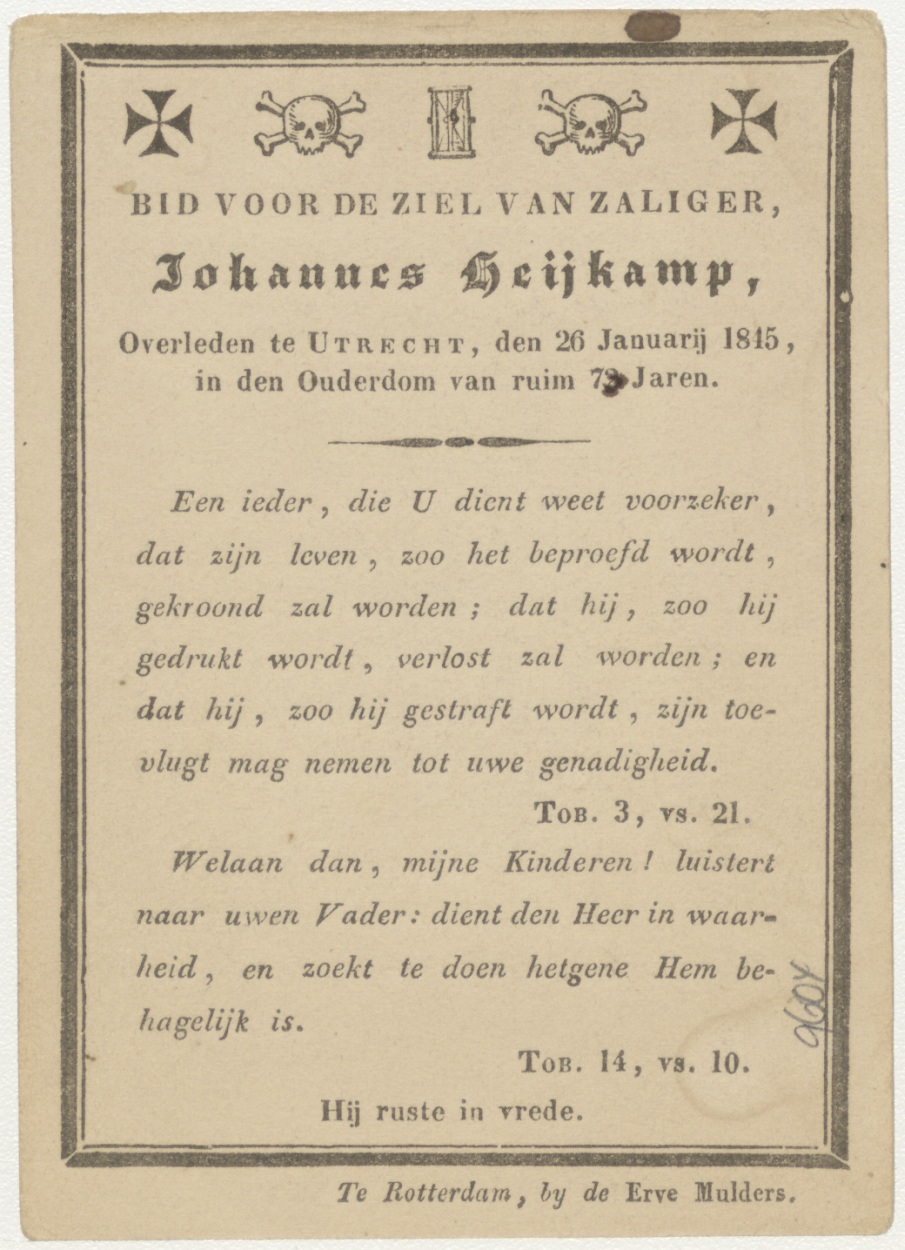 BID VOOR DE ZIEL VAN ZALIGER,
Johannes Heijkamp,
Overleden te UTRECHT, den 26 Januarij 1845,
in den Ouderdom van ruim Jaren.
Een ieder, die U dient weet voorzeker,
dat zijn leven, zoo het beproefd wordt,
gekroond zal worden; dat hij, zoo hij
gedrukt wordt, verlost zal worden; en
dat hij, zoo hij gestraft wordt, zijn toe-
vlugt mag nemen tot uwe genadigheid.
TOB. 3, vs. 21.
Welaan dan, mijne Kinderen! luistert
naar uwen Vader: dient den Heer in waar-
heid, en zoekt te doen hetgene Hem be-
hagelijk is.
TOB. 14, vs. 10.
Hij ruste in vrede.
Te Rotterdam, by de Erve Mulders.